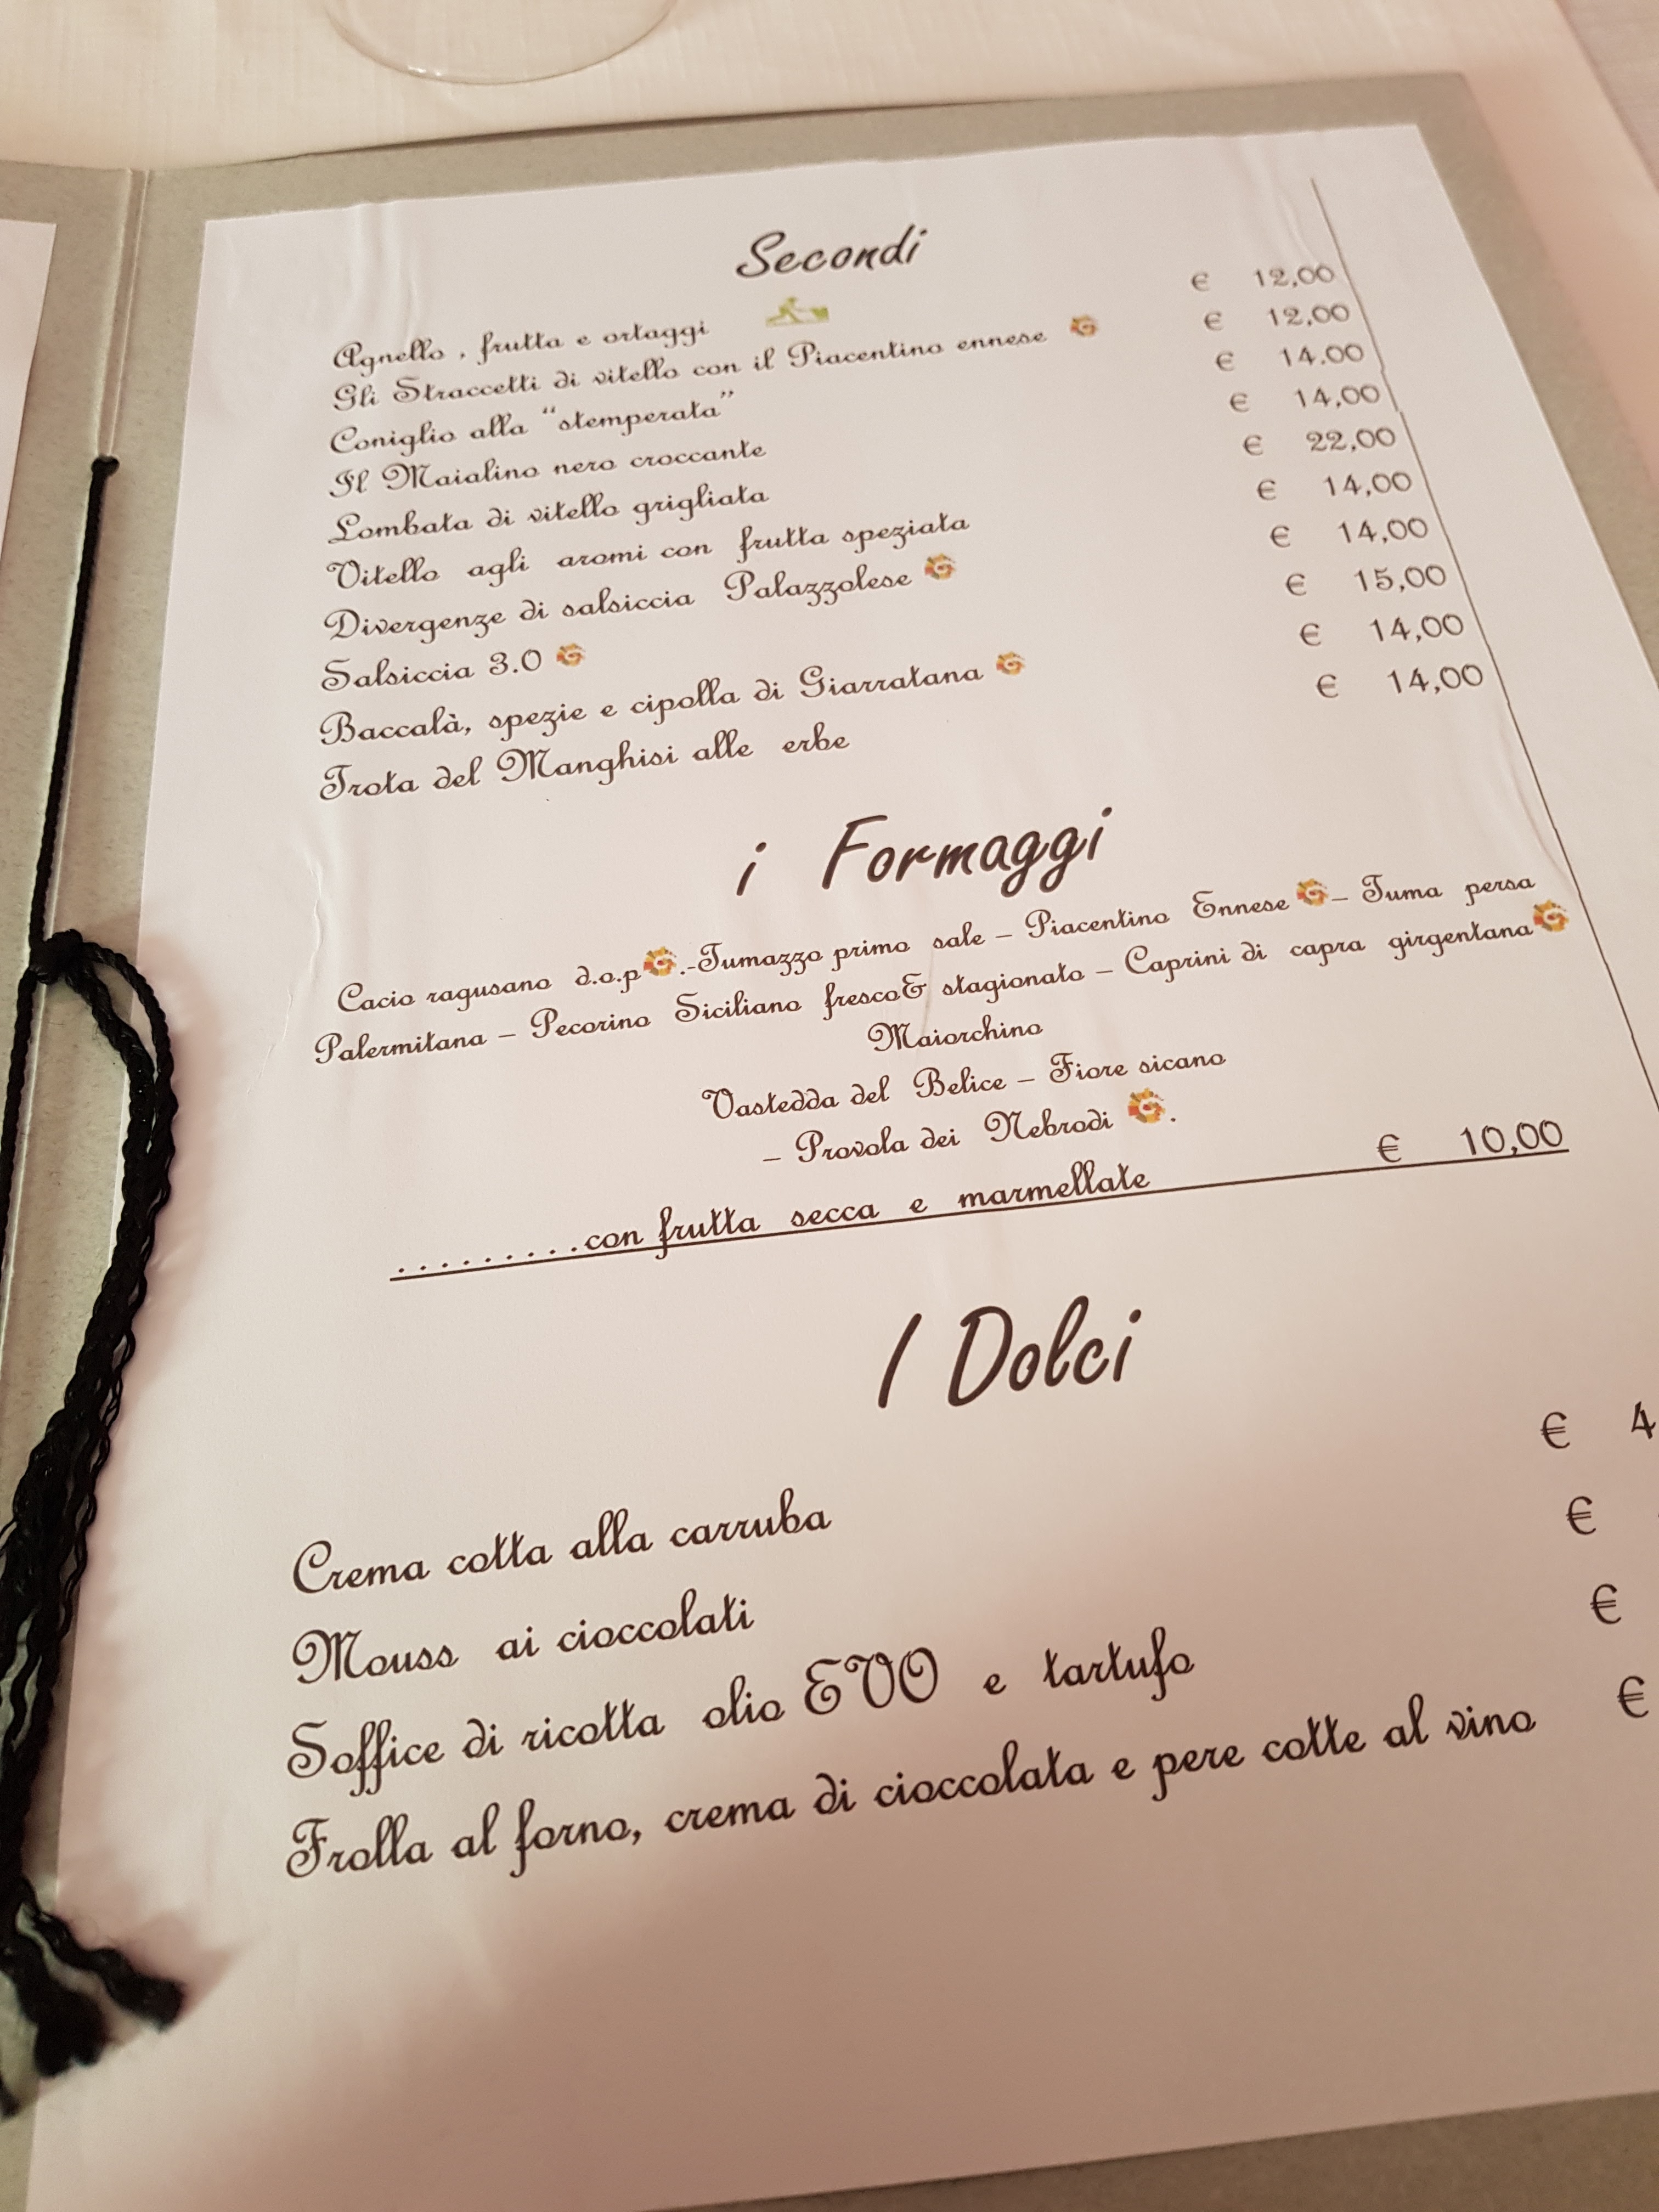 Secondi
Agnello , frutta e ortaggi € 12,00
Gli Straccetti di vitello con il Piacentino ennese € 12,00
Coniglio alla “stemperata” € 14.00
Il Maialino nero croccante € 14,00
Lombata di vitello grigliata € 22,00
Vitello agli aromi con frutta speziata € 14,00
Divergenze di salsiccia Palazzolese € 14,00
Salsiccia 3.0 € 15,00
Baccalà, spezie e cipolla di Giarratana € 14,00
Trota del Manghisi alle erbe € 14,00
i Formaggi
Cacio ragusano d.o.p.-Tumazzo primo sale – Piacentino Ennese – Tuma persa
Palermitana – Pecorino Siciliano fresco& stagionato – Caprini di capra girgentana
Maiorchino
Vastedda del Belice – Fiore sicano
– Provola dei Nebrodi .
.........con frutta secca e marmellate € 10,00
I Dolci
Crema cotta alla carruba € 4
Mouss ai cioccolati €
Soffice di ricotta olio EVO e tartufo €
Frolla al forno, crema di cioccolata e pere cotte al vino €